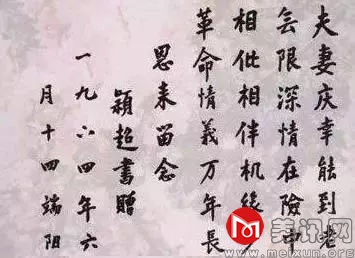 夫妻庆幸能到老
無限深情在險中
相依相伴机緣
革命情義万年長
恩来留念
穎超書贈
一九六四年六
月十四端阳
美讯网
www.meixun.org